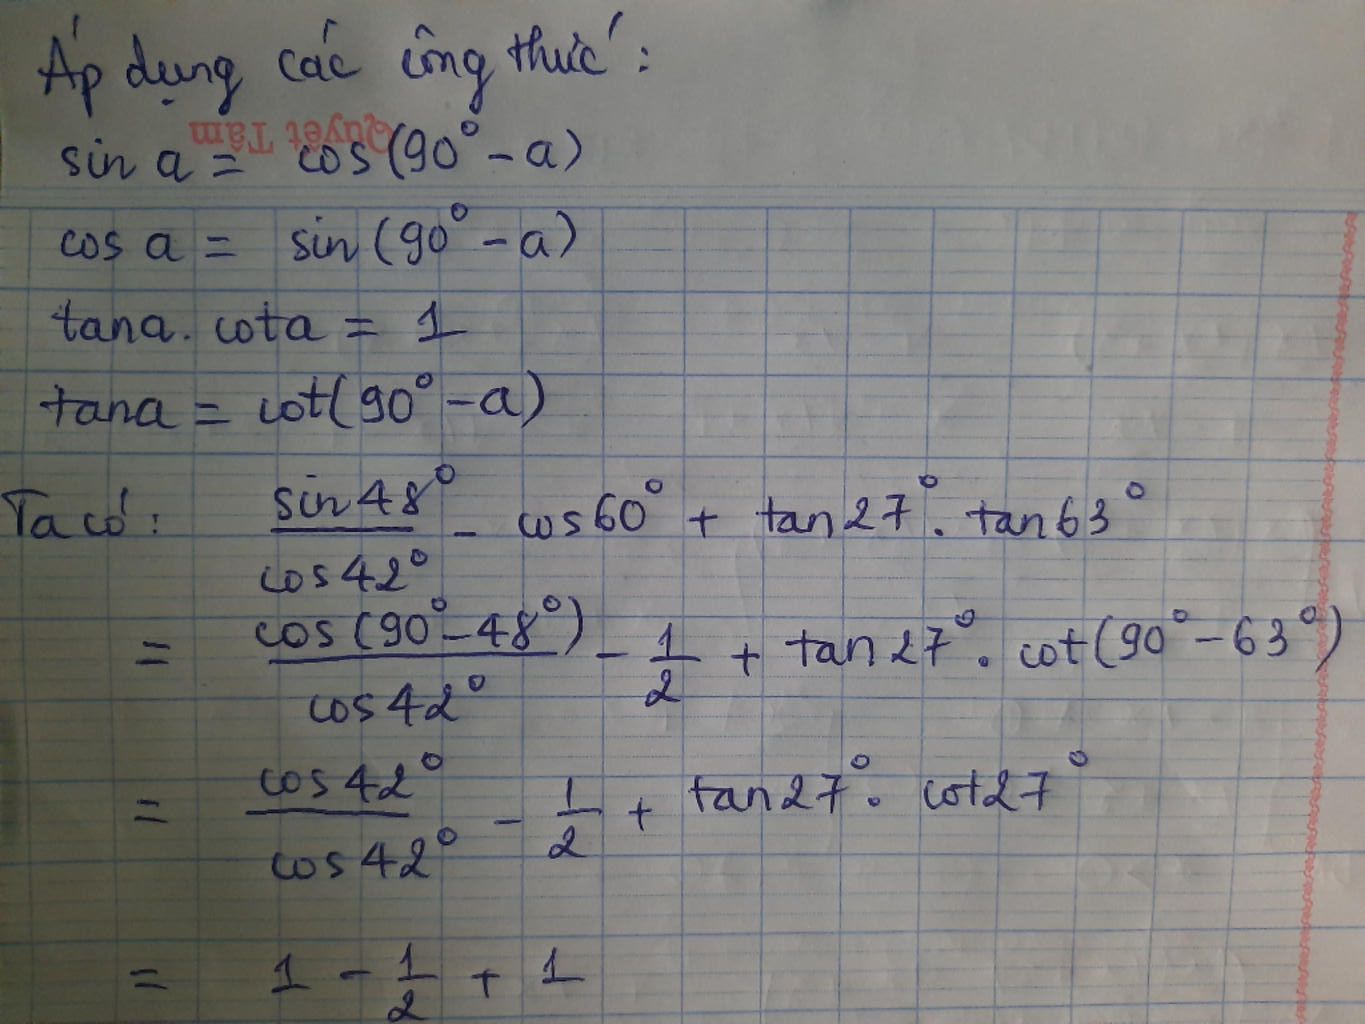 Áp dụng các công thức :
Quyết Tâm
sin a = cos(90° - a)
cos a = sin(90° - a)
tana. cota = 1
tana = cot(90° - a)
Ta có : sin48°/cos42° - cos60° + tan27° . tan63°
= cos(90° - 48°)/cos42° - 1/2 + tan27° . cot(90° - 63°)
= cos42°/cos42° - 1/2 + tan27° . cot27°
= 1 - 1/2 + 1